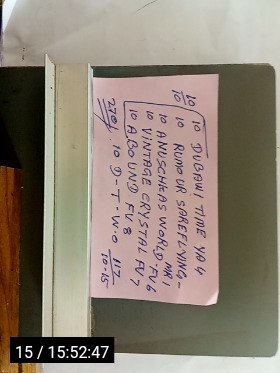 10 DUBAWI TIME YA4
10/10 10 RUMOUR SAREFLYING -
MR1
10 ANUSCHEAS WORLD - FV6
10 VINTAGE CRYSTAL FV7
10 A BOUND FV8
270/ 10 D-T-W.O 117
10-15
15 / 15:52:47